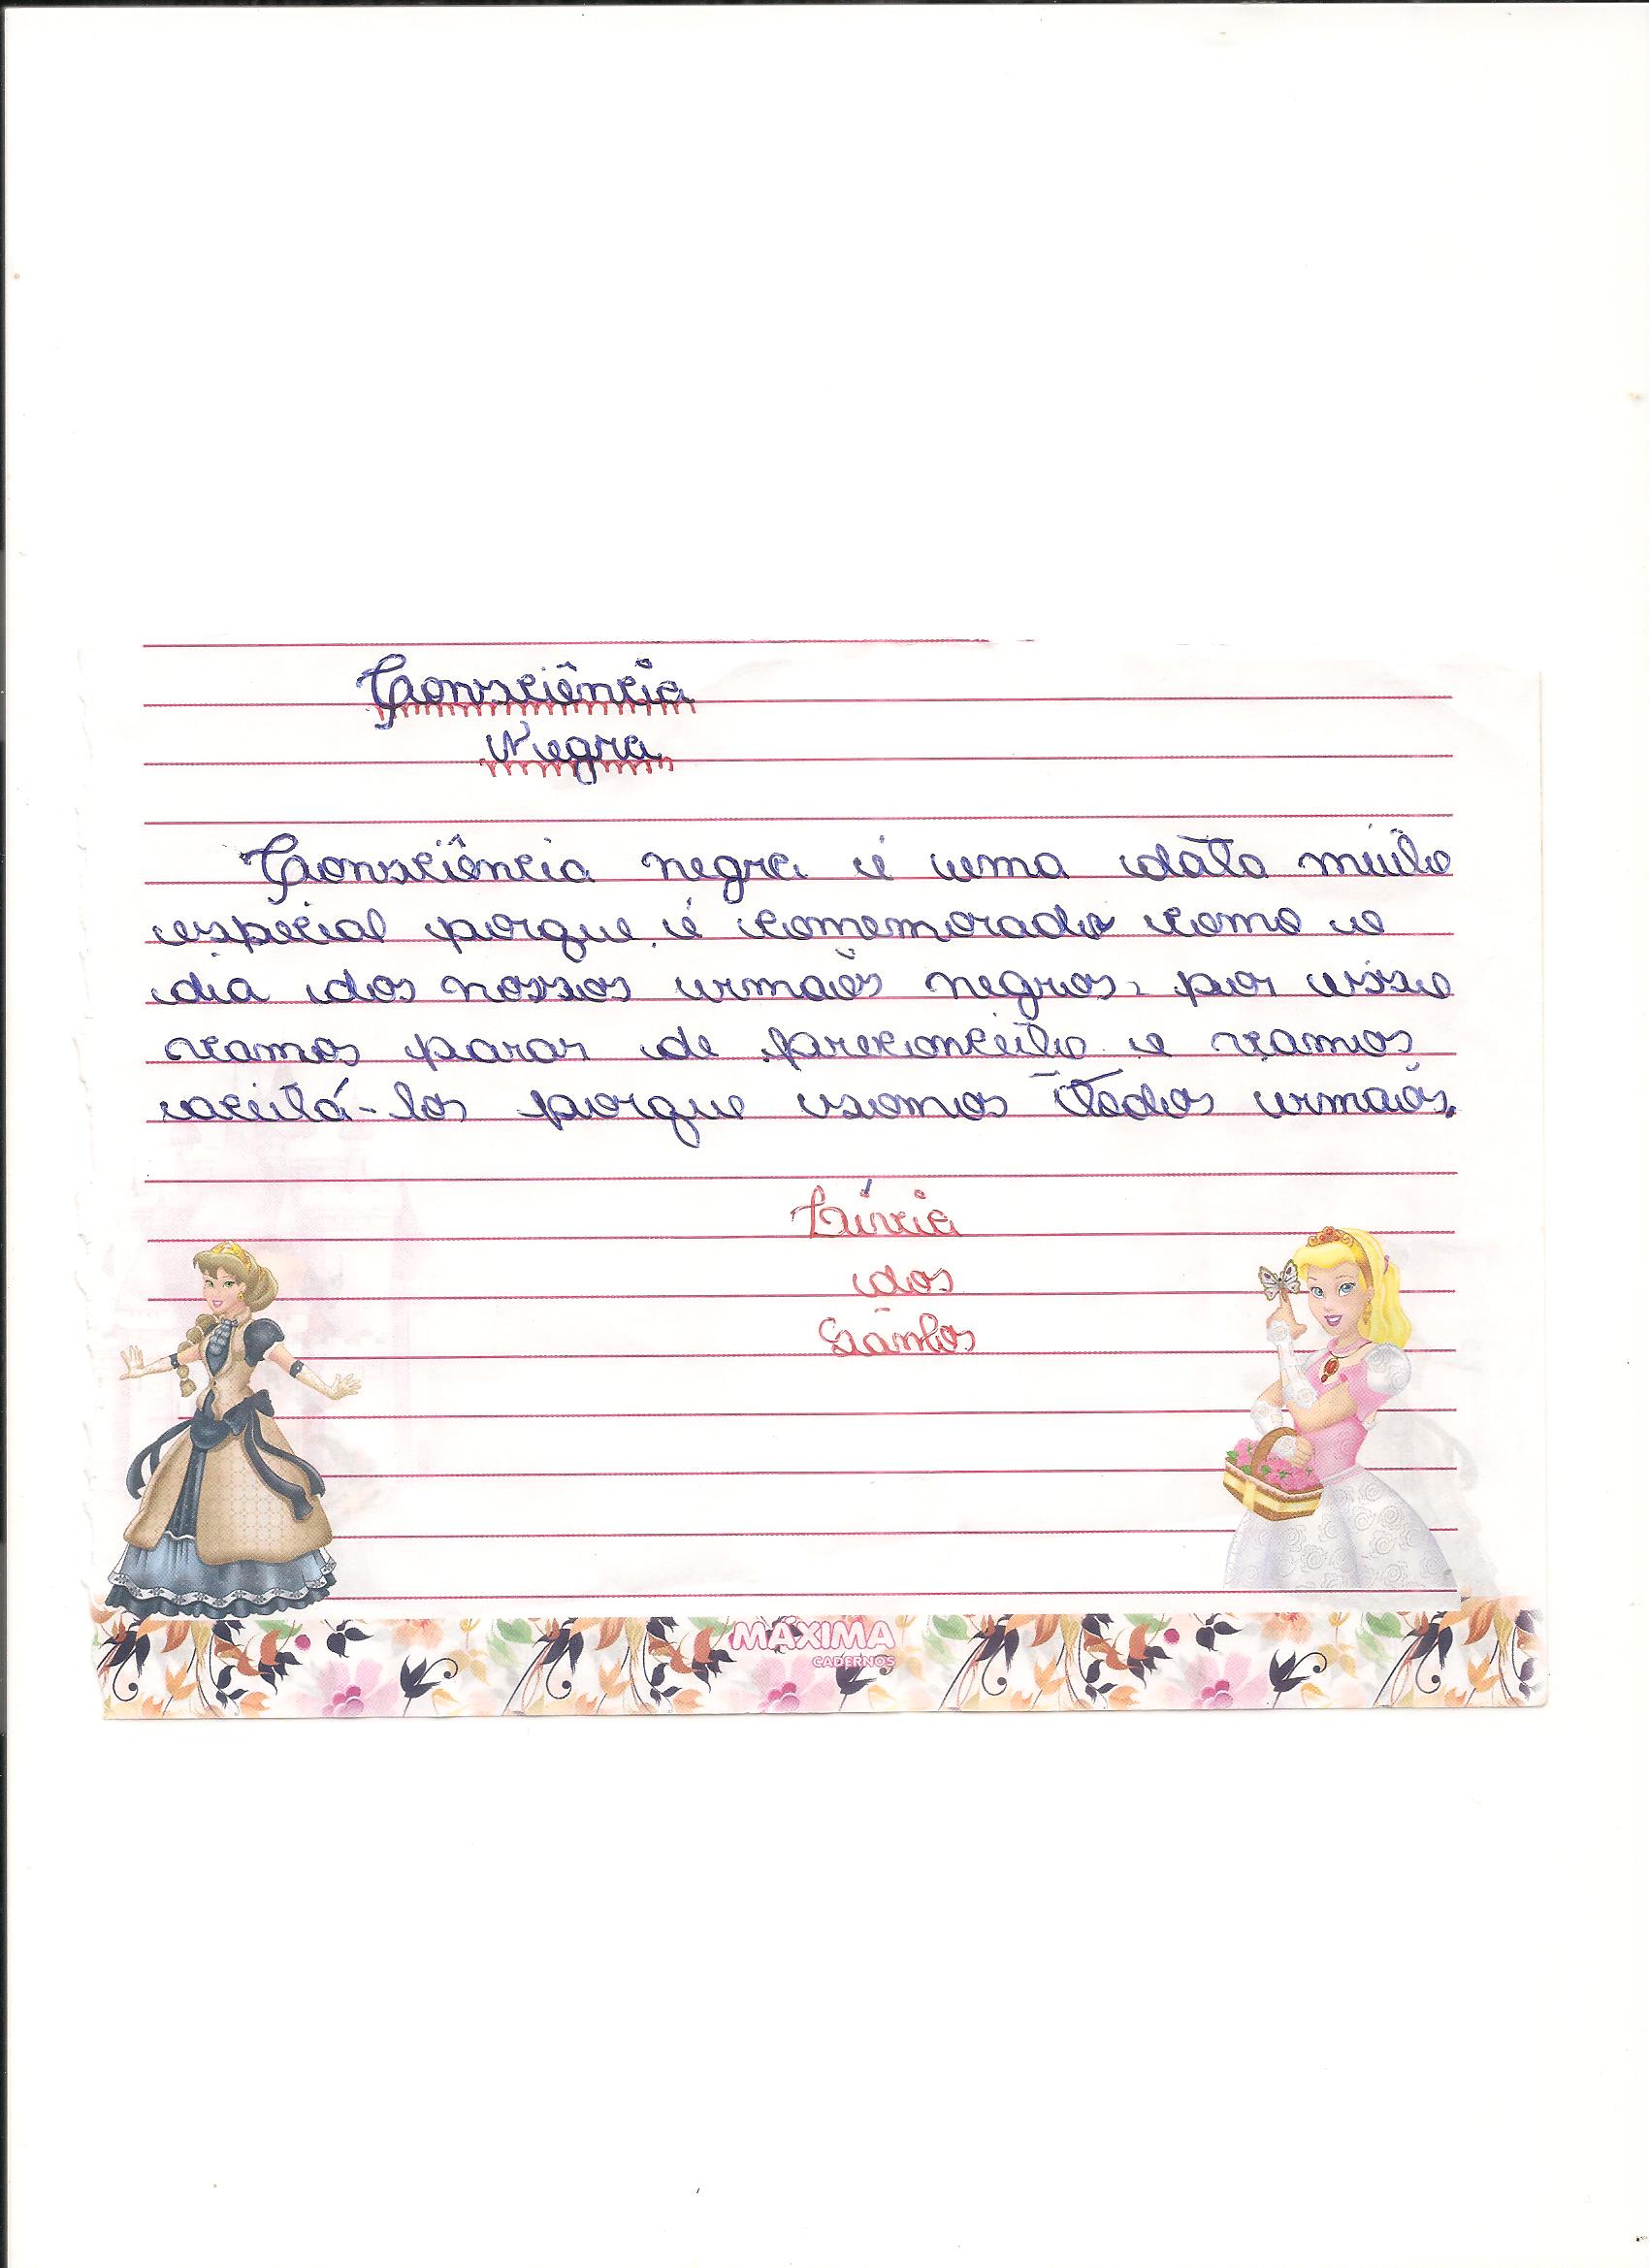 Consciência
Negra
Consciência negra é uma data muito
especial porque é comemorado como o
dia dos nossos irmãos negros, por isso
vamos parar de preconceito e vamos
aceitá-los porque somos todos irmãos.
Lívia
dos
Santos
MÁXIMA
CADERNOS